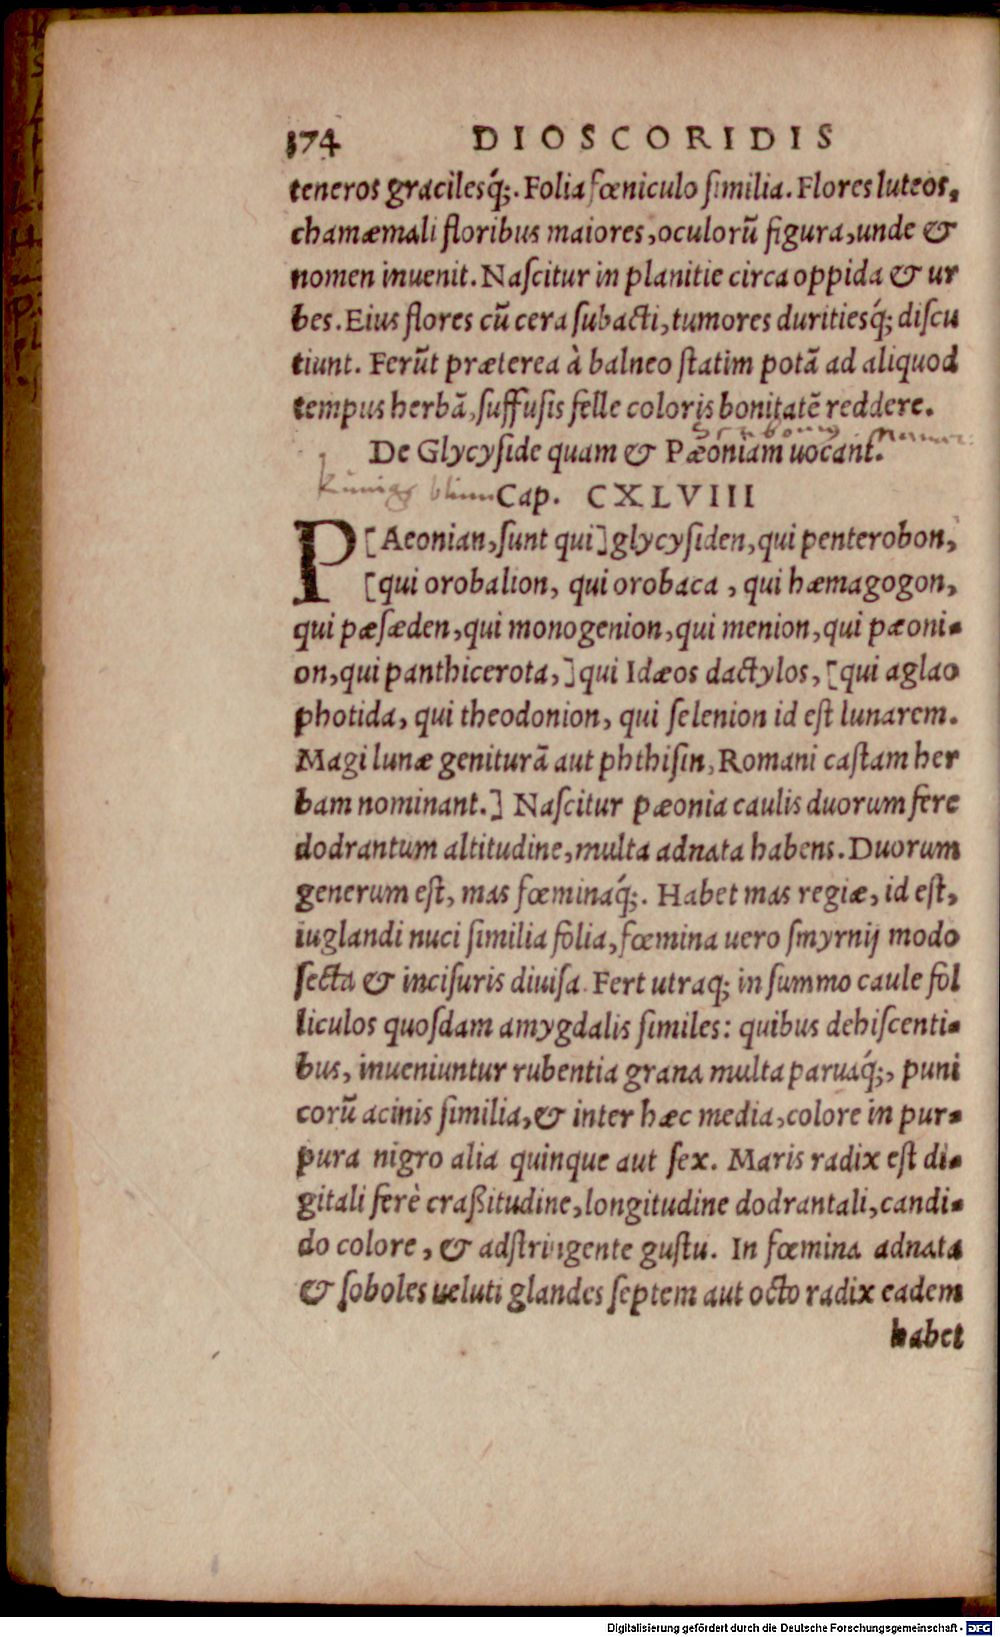 174 DIOSCORIDIS
teneros gracilesq́;. Folia fœniculo ſimilia. Flores luteos,
chamæmali floribus maiores, oculorū figura, unde &
nomen inuenit. Naſcitur in planitie circa oppida & ur
bes. Eius flores cū cera ſubacti, tumores duritiesq́; diſcu
tiunt. Ferūt præterea à balneo ſtatim potā ad aliquod
tempus herbā, ſuffuſis felle coloris bonitatē reddere.
De Glycyſide quam & Pæoniam uocant.
blum Cap. CXLVIII
P[Aeonian, ſunt qui] glycyſiden, qui penterobon,
[qui orobalion, qui orobaca, qui hæmagogon,
qui pæſæden, qui monogenion, qui menion, qui pæoni-
on, qui panthicerota,] qui Idæos dactylos, [qui aglao
photida, qui theodonion, qui ſelenion id eſt lunarem.
Magi lunæ geniturā aut phthiſin, Romani caſtam her
bam nominant.] Naſcitur pæonia caulis duorum fere
dodrantum altitudine, multa adnata habens. Duorum
generum eſt, mas fœminaq́;. Habet mas regiæ, id eſt,
iuglandi nuci ſimilia folia, fœmina uero ſmyrnij modo
ſecta & inciſuris diuiſa. Fert utraq; in ſummo caule fol
liculos quoſdam amygdalis ſimiles: quibus dehiſcenti-
bus, inueniuntur rubentia grana multa paruaq́;, puni
corū acinis ſimilia, & inter hæc media, colore in pur-
pura nigro alia quinque aut ſex. Maris radix eſt di-
gitali ferè craßitudine, longitudine dodrantali, candi-
do colore, & adſtringente guſtu. In fœmina adnata
& ſoboles ueluti glandes ſeptem aut octo radix eadem
habet
Digitalisierung gefördert durch die Deutsche Forschungsgemeinschaft - DFG